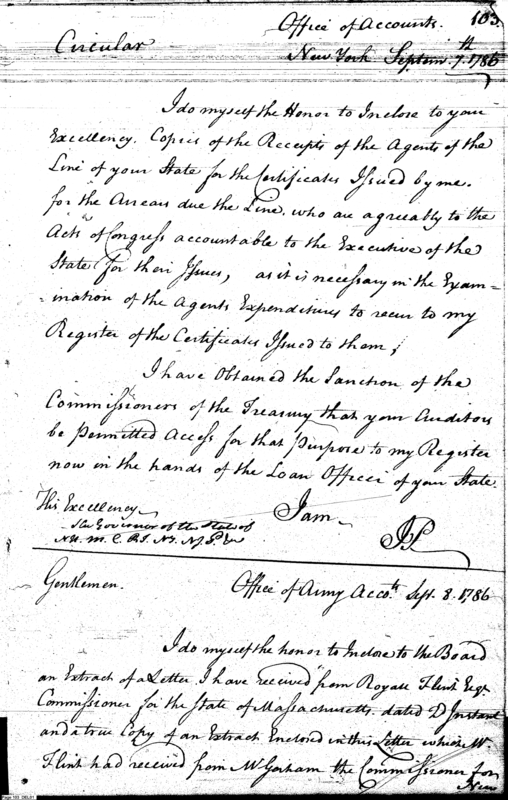 Office of Accounts. 103.
Circular
New York Septem. 7.th 1786
I do myself the Honor to Inclose to your
Excellency. Copies of the Receipts of the Agents of the
Line of your State for the Certificates Issued by me.
for the Arrears due the Line. who are agreeably to the
Acts of Congress accountable to the Executive of the
State for their Issues, as it is necessary in the Exam-
-ination of the Agents Expenditures to recur to my
Register of the Certificates Issued to them,
I have Obtained the Sanction of the
Commissioners of the Treasury that your Auditors
be Permitted Access for that Purpose to my Register
now in the hands of the Loan Officer of your State
His Excellency
I am
The Governor of the State of
N H. M. C. R I. N Y. N J. P. &c
JP
Gentlemen. Office of Army Acco.ts Sept. 8. 1786
I do myself the honor to Inclose to the Board
an Extract of a Letter I have received from Royall Flint Esqr
Commissioner for the State of Massachusetts. dated 2 Instant
and a true Copy of an Extract Enclosed in this Letter which Mr.
Flint had received from Mr Gorham the Commissioner for
New